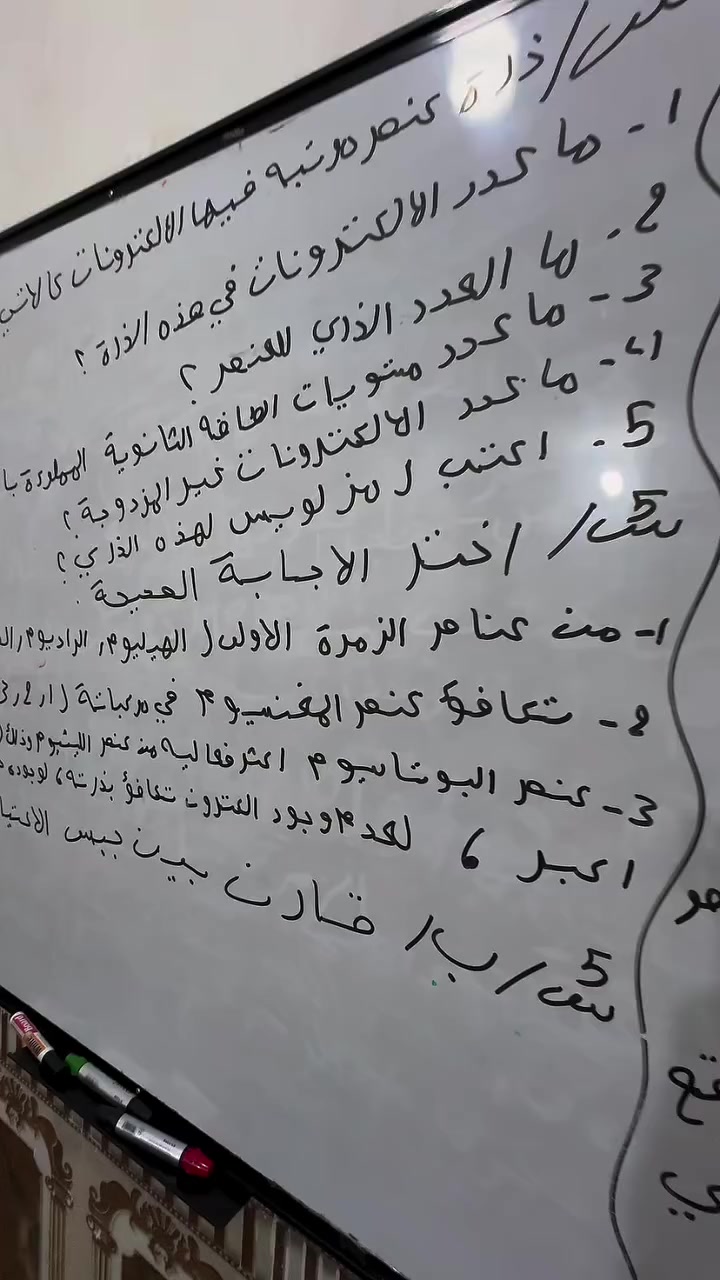 س/ ذرة عنصر مرتبه فيها الالكترونات كالاتي
1- ما عدد الالكترونات في هذه الذرة ؟
2. ما العدد الذري للعنصر ؟
3- ما عدد مستويات الطاقة الثانوية المملوءة با
4- ما عدد الالكترونات غير المزدوجة ؟
5. اكتب رمز لويس لهذه الذري ؟
س5/ اختر الاجابة الصحيحة :
1- من عناصر الزمرة الاولى ( الهيليوم, الراديوم, ال
2- تكافؤ عنصر المغنسيوم في مركباتة ( 1, 2, 3
3- عنصر البوتاسيوم اكثر فعالية من عنصر الليثيوم وذلك (
اكبر ، لعدم وجود الكترون تكافؤ بذرته ، لوجود
س5/ ب/ قارن بين
هر
قع
ي